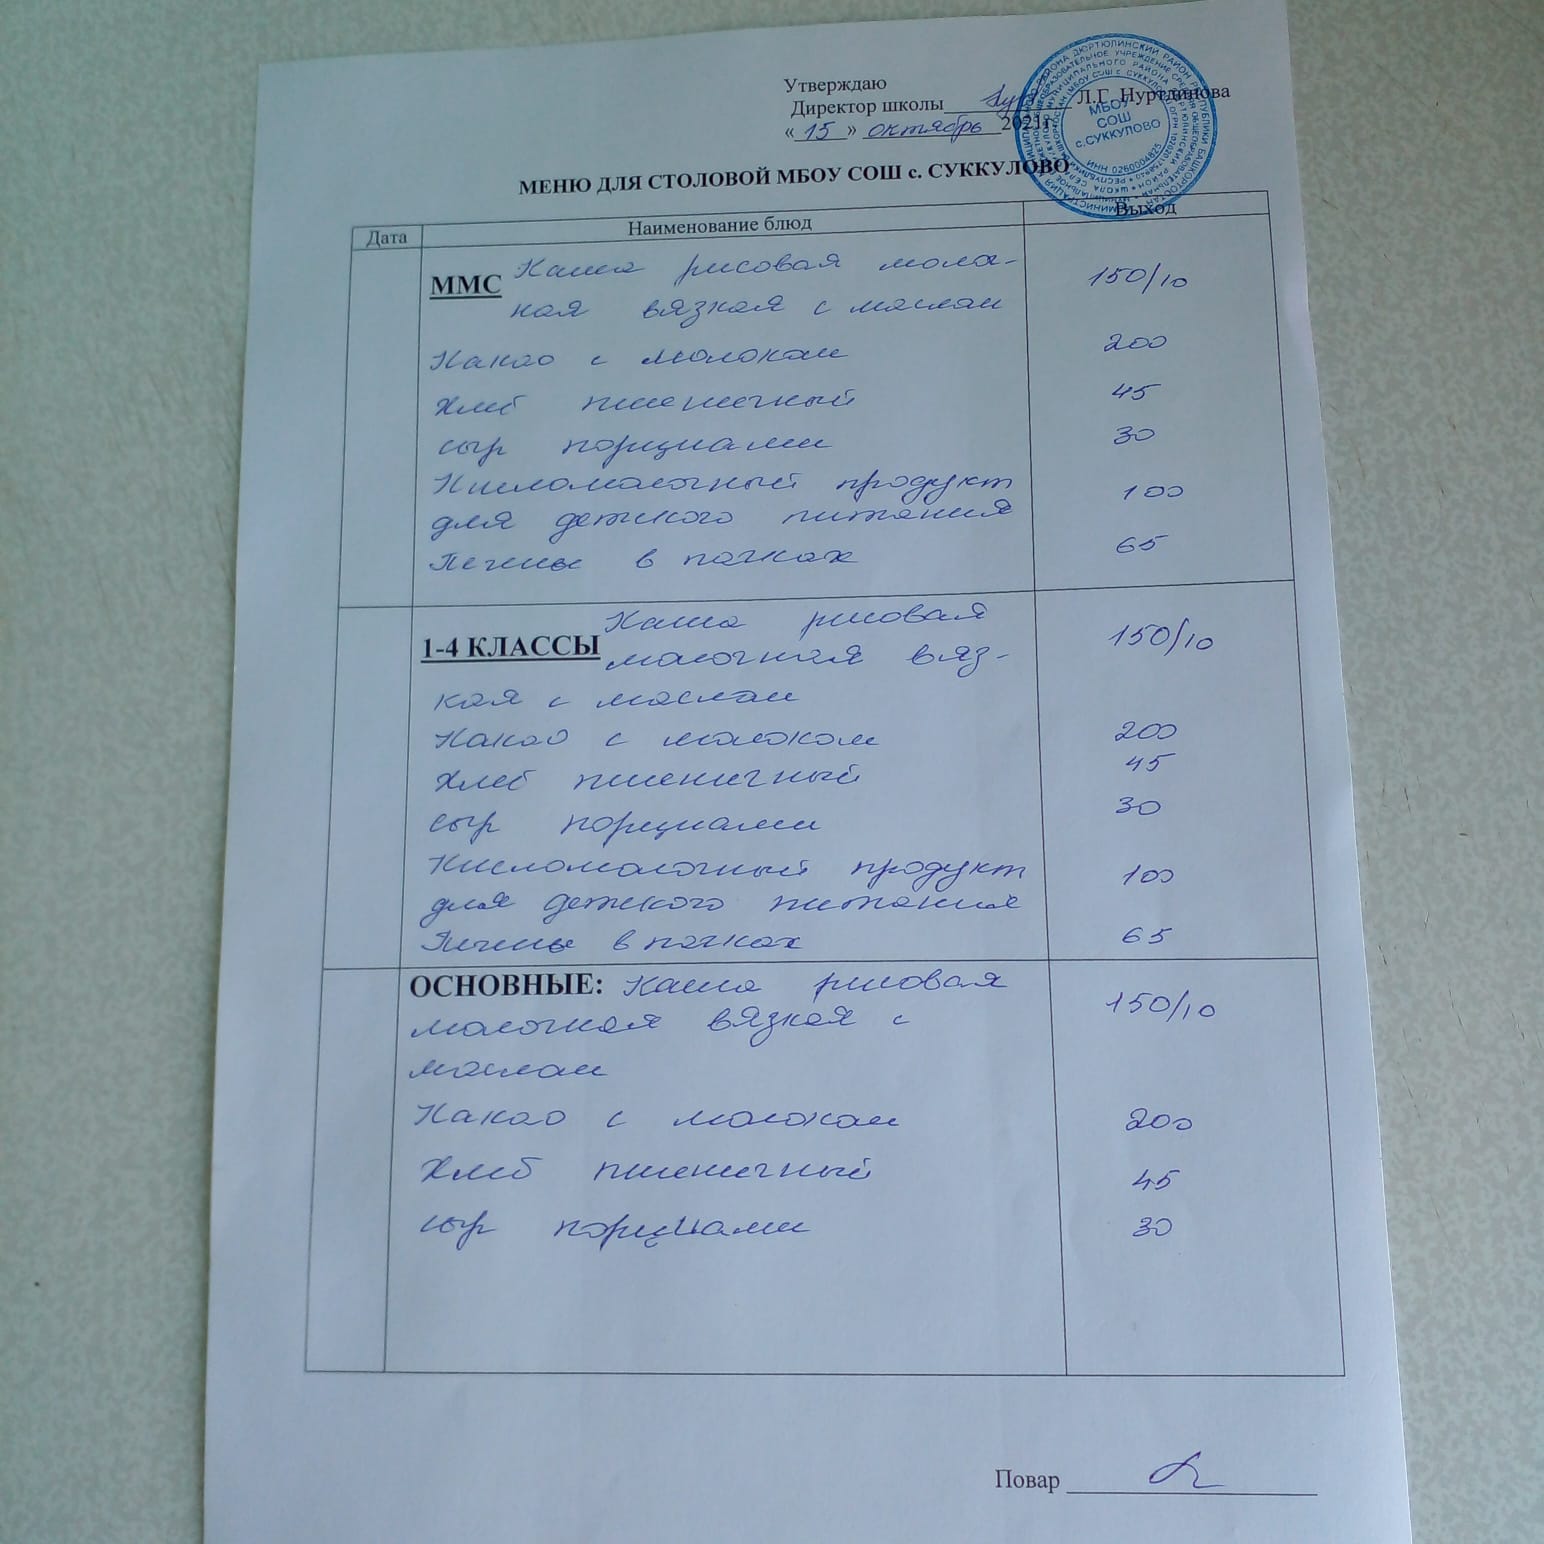 Утверждаю
Директор школы Л.Г. Нуртдинова
« 15 » октябрь 2021г.
МБОУ
СОШ
с.СУККУЛОВО
ИНН 0260004825
МЕНЮ ДЛЯ СТОЛОВОЙ МБОУ СОШ с. СУККУЛОВО
Дата Наименование блюд Выход
ММС Каша рисовая молоч- 150/10
ная вязкая с маслом
Какао с молоком 200
Хлеб пшеничный 45
сыр порциями 30
Кисломолочный продукт 100
для детского питания
Печенье в пачках 65
1-4 КЛАССЫ Каша рисовая 150/10
молочная вяз-
кая с маслом
Какао с молоком 200
Хлеб пшеничный 45
сыр порциями 30
Кисломолочный продукт 100
для детского питания
Печенье в пачках 65
ОСНОВНЫЕ: Каша рисовая 150/10
молочная вязкая с
маслом
Какао с молоком 200
Хлеб пшеничный 45
сыр порциями 30
Повар